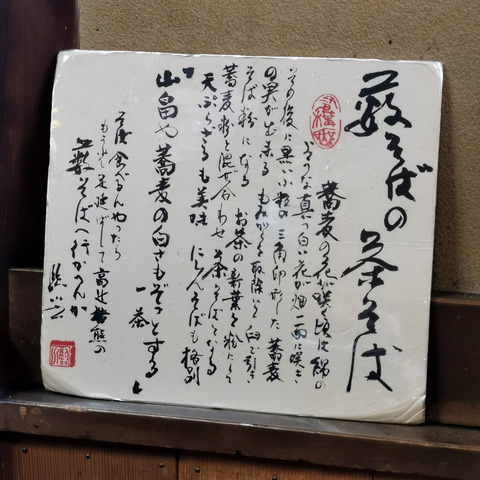 藪そばの茶そば
蕎麦の花が咲く頃は綿の
ような真っ白い花が畑一面に咲き
その後に黒い小粒の三角印形した蕎麦
の実が出来る もみがらを取除いて臼で引き
そば粉になる お茶の新葉を粉にして
蕎麦粉と混ぜ合わせ 茶そばとなる
天ぷらざるも美味 にしんそばも格別
山畠や蕎麦の白さもぞっとする
一茶
そば食べるんやったら
足延ばして高辻猪熊の
藪そばへ行かへんか